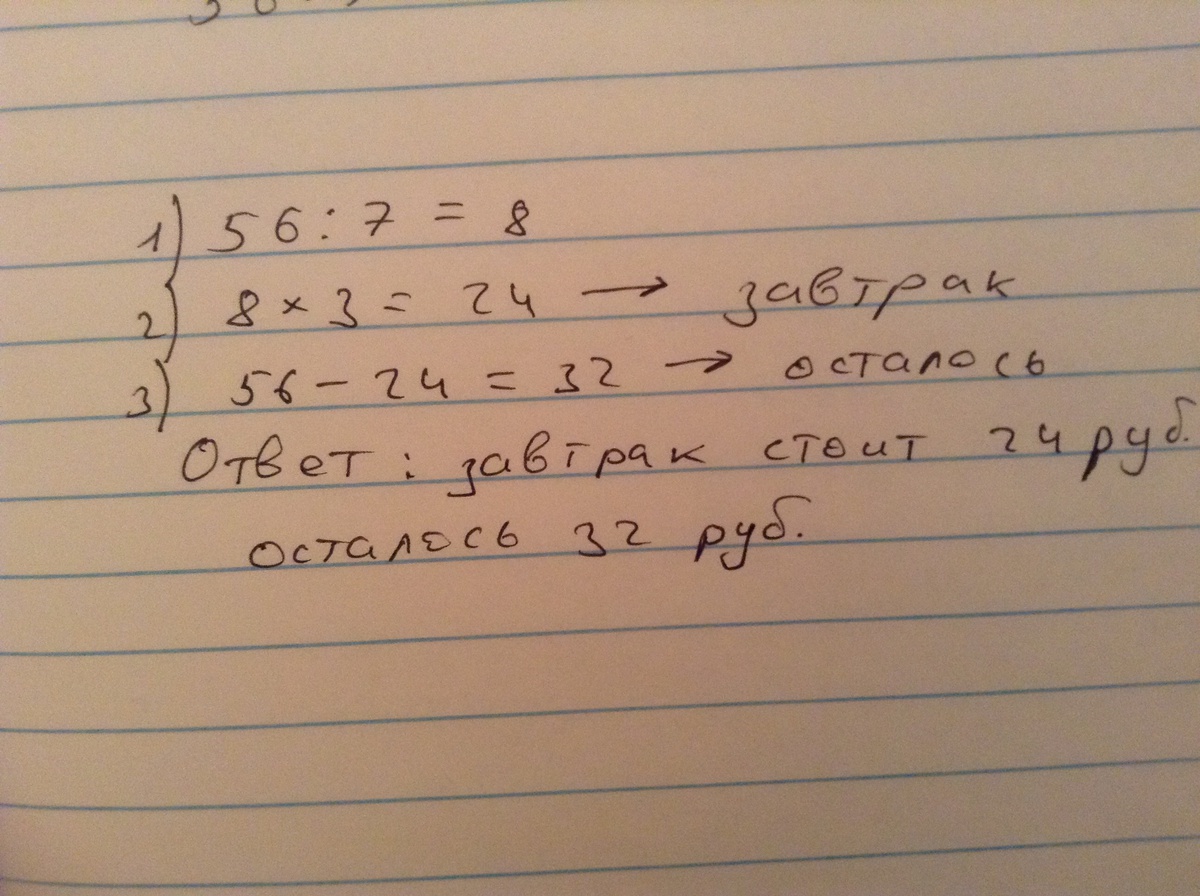 1) 56 : 7 = 8
2) 8 × 3 = 24 → завтрак
3) 56 - 24 = 32 → осталось
Ответ : завтрак стоит 24 руб.
осталось 32 руб.